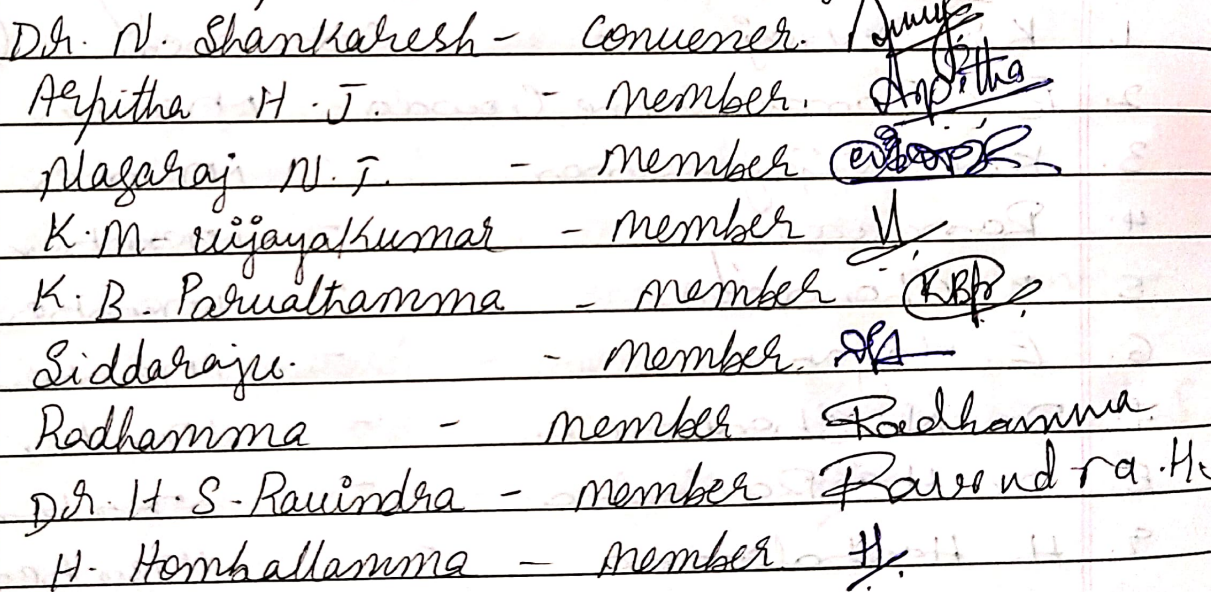 Dr. N. Shankaresh - Convener.
Arpitha H. J. - member. Arpitha
Nagaraj N. J. - member
K. M - Vijayakumar - member V
K. B. Parvathamma - member KBP
Siddaraju. - member.
Radhamma - member Radhamma
Dr. H. S - Ravindra - member Raveendra. H.
H. Homballamma - member H.